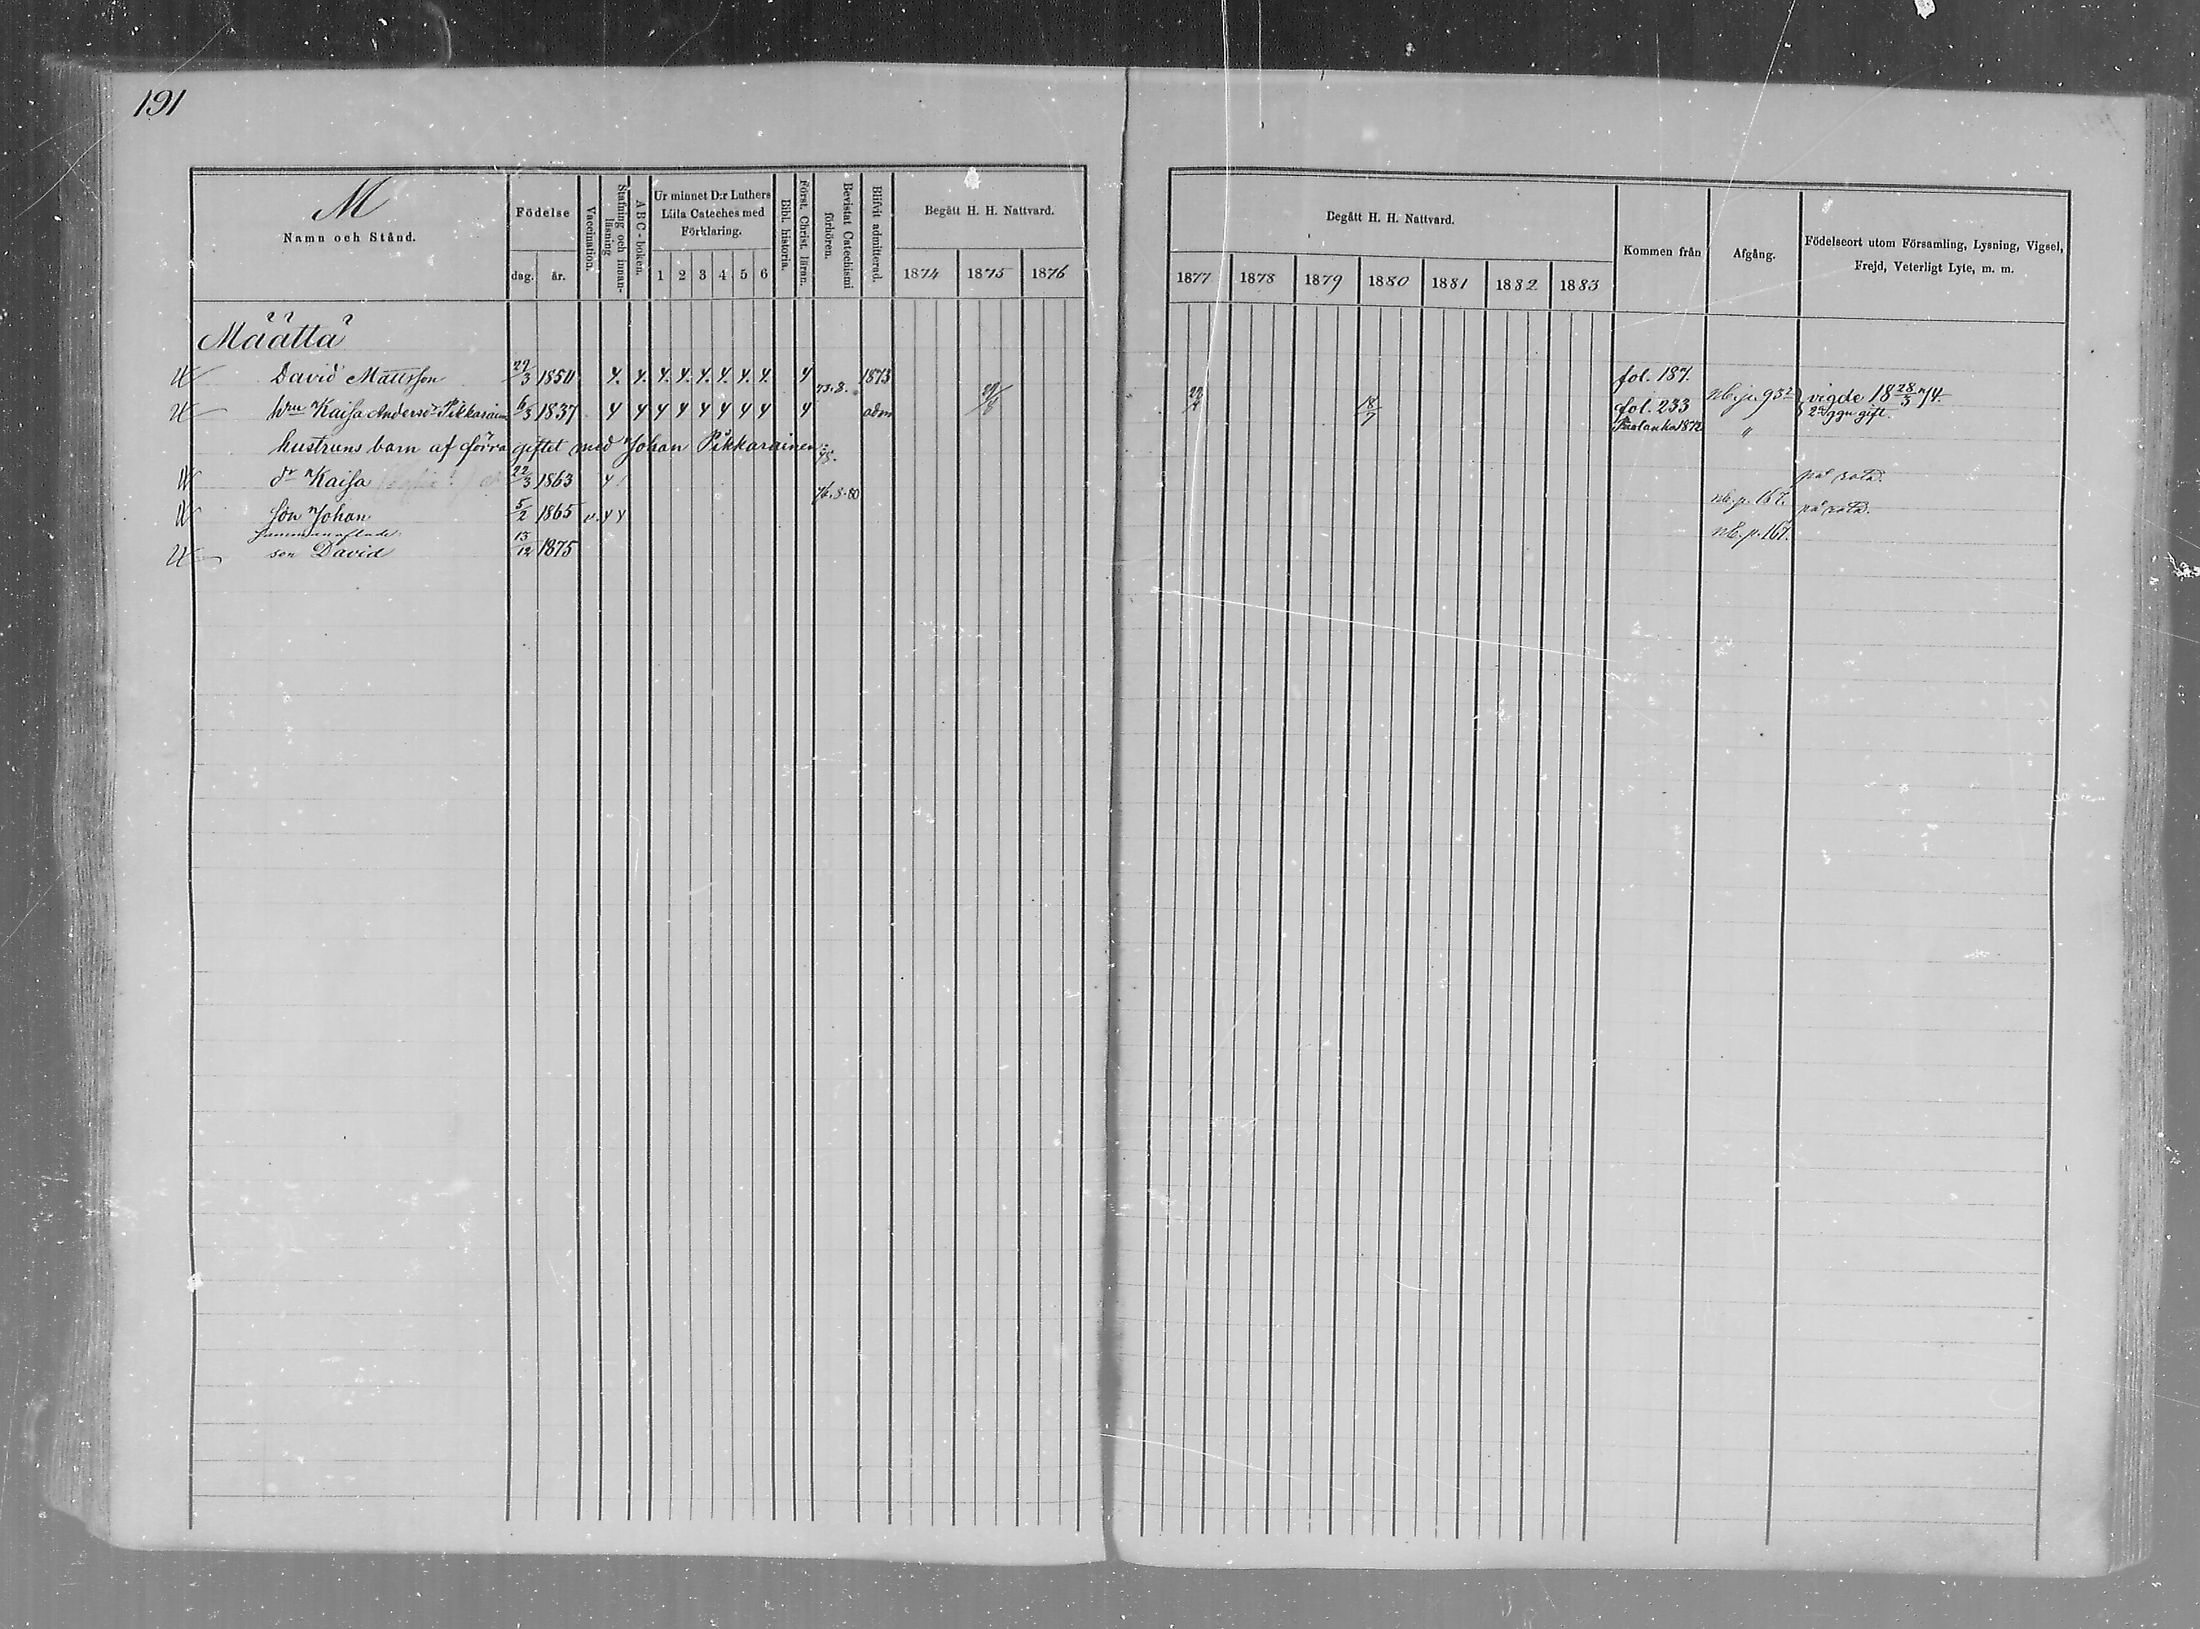 191
M
Namn och Stånd.
Födelse
dag. år.
Vaccination.
Stafning och innanläsning
A B C - boken.
Ur minnet D:r Luthers Lilla Cateches med Förklaring.
1 2 3 4 5 6
Bibl. historia.
Först. Christ. läran.
Bevistat Catechismi förhören.
Blifvit admitterad.
Begått H. H. Nattvard.
1874 1875 1876
Begått H. H. Nattvard.
1877 1878 1879 1880 1881 1882 1883
Kommen från
Afgång.
Födelseort utom Församling, Lysning, Vigsel, Frejd, Veterligt Lyte, m. m.
Määttä
David Mattsson 1850 1873 fol. 187.
hru Kaisa Andersdr Pikkarain 6/3 1837 adm 18/7 fol. 233 nb. p. 932 vigde 18 28/3 74.
1872 " 2a ggn gift.
hustruns barn af förra giftet med Johan Pikkarainen
dr Kaisa 22/3 1863 på rota.
76. 8. 80
son Johan 5/2 1865 v. nb. p. 167. på rota.
sammanaflade
son David 13/12 1875 nb. p. 167.